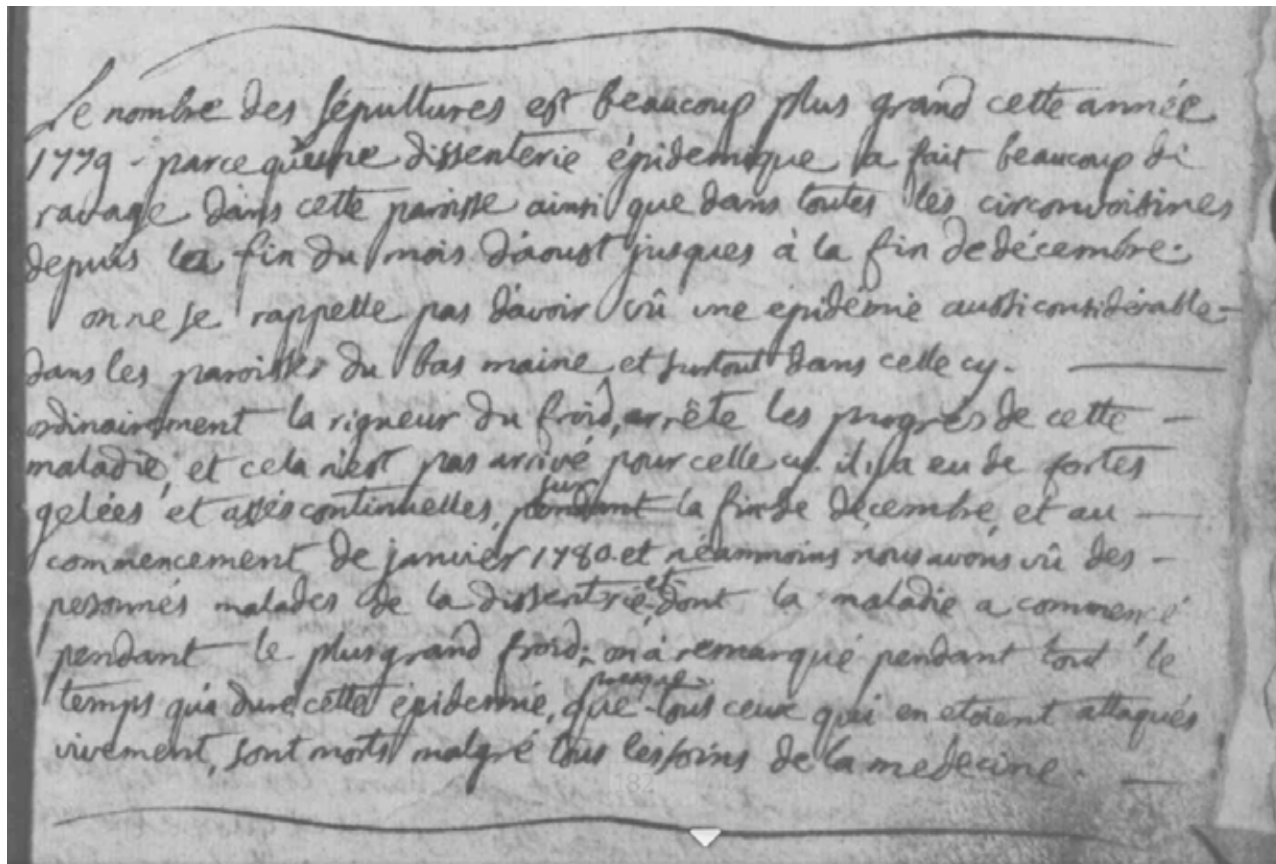 Le nombre des sépultures est beaucoup plus grand cette année
1779 - parce qu'une dissenterie épidemique a fait beaucoup de
ravage dans cette paroisse ainsi que dans toutes les circonvoisines
depuis la fin du mois d'aoust jusques à la fin de décembre.
on ne se rappelle pas d'avoir vû une epidémie aussi considérable -
dans les paroisses du bas maine et surtout dans celle cy. —
ordinairement la rigueur du froid, arrête les progrès de cette -
maladie, et cela n'est pas arrivé pour celle cy. il y a eu de fortes
gelées et assés continuelles, sur la fin de décembre, et au —
commencement de janvier 1780. et néanmoins nous avons vû des -
personnes malades de la dissentrie, et dont la maladie a commencé
pendant le plus grand froid; on a remarqué pendant tout le
temps qu'a duré cette épidemie, que presque tous ceux qui en etoient attaqués
vivement, sont morts malgré tous les soins de la medecine. —
182